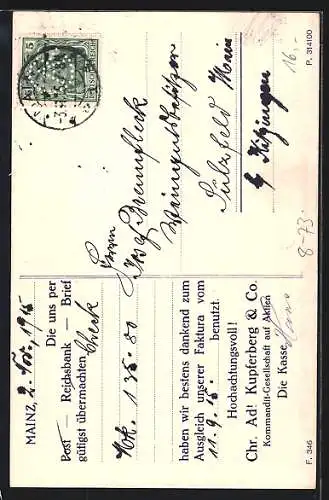 MAINZ, 2. Nov. 1915
Die uns per
Post — Reichsbank — Brief
gütigst übermachten Check
Mk. 135.80
haben wir bestens dankend zum
Ausgleich unserer Faktura vom
11.9.15. benutzt.
Hochachtungsvoll!
Chr. Adt Kupferberg & Co.
Kommandit-Gesellschaft auf Aktien
Die Kasse
F. 346
5
Herrn
Josef Brennfleck
Weingutsbesitzer
Sulzfeld Main
b/ Kitzingen
P. 314100
16.-
8-73